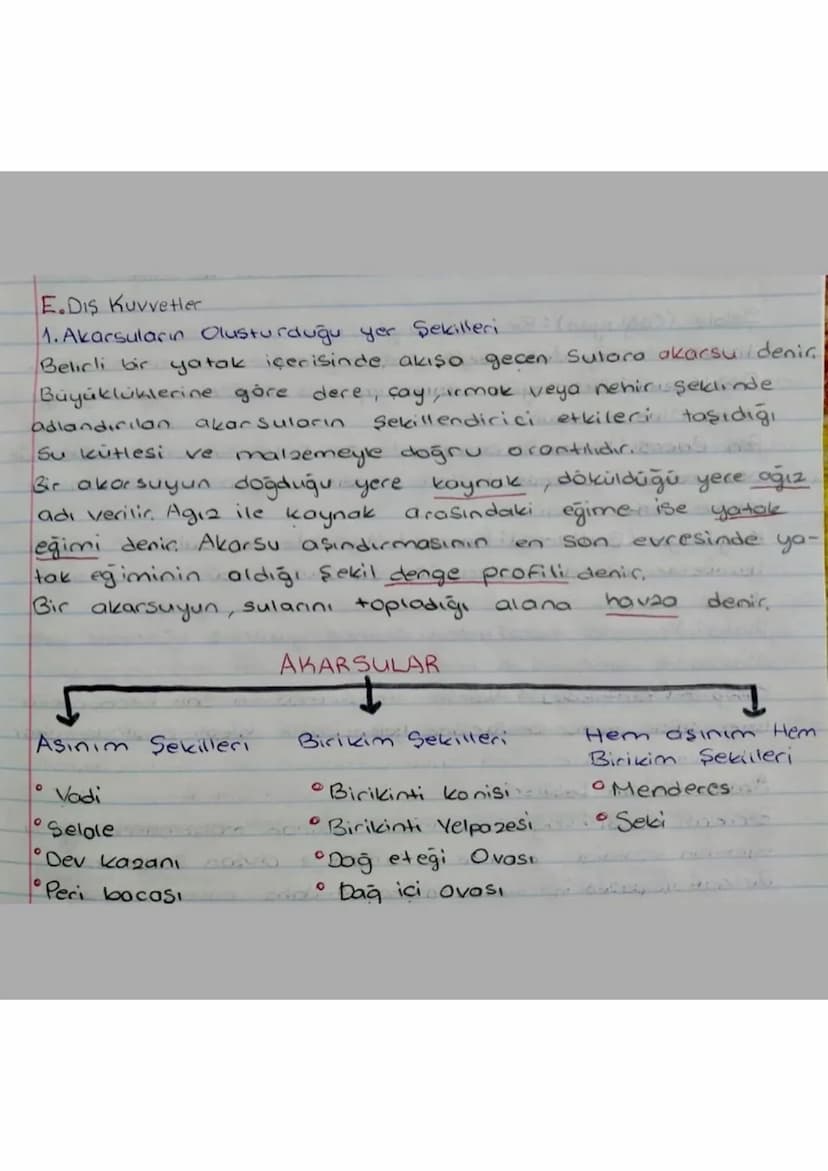 E. Dış Kuvvetler
1. Akarsuların Oluşturduğu yer Şekilleri
Belirli bir yatak içerisinde akışa geçen sulara akarsu denir.
Büyüklüklerine göre dere, çay, ırmak veya nehir şeklinde
adlandırılan akarsuların şekillendirici etkileri taşıdığı
su kütlesi ve malzemeyle doğru orantılıdır.
Bir akarsuyun doğduğu yere kaynak, döküldüğü yere ağız
adı verilir. Ağız ile kaynak arasındaki eğime ise yatak
eğimi denir. Akarsu aşındırmasının en son evresinde ya-
tak eğiminin aldığı şekil denge profili denir.
Bir akarsuyun, sularını topladığı alana havza denir.
AKARSULAR
Aşınım Şekilleri
° Vadi
° Şelale
° Dev kazanı
° Peri bacası
Birikim Şekilleri
° Birikinti konisi
° Birikinti Yelpazesi
° Dağ eteği Ovası
° Dağ içi ovası
Hem aşınım Hem
Birikim Şekilleri
° Menderes
° Seki